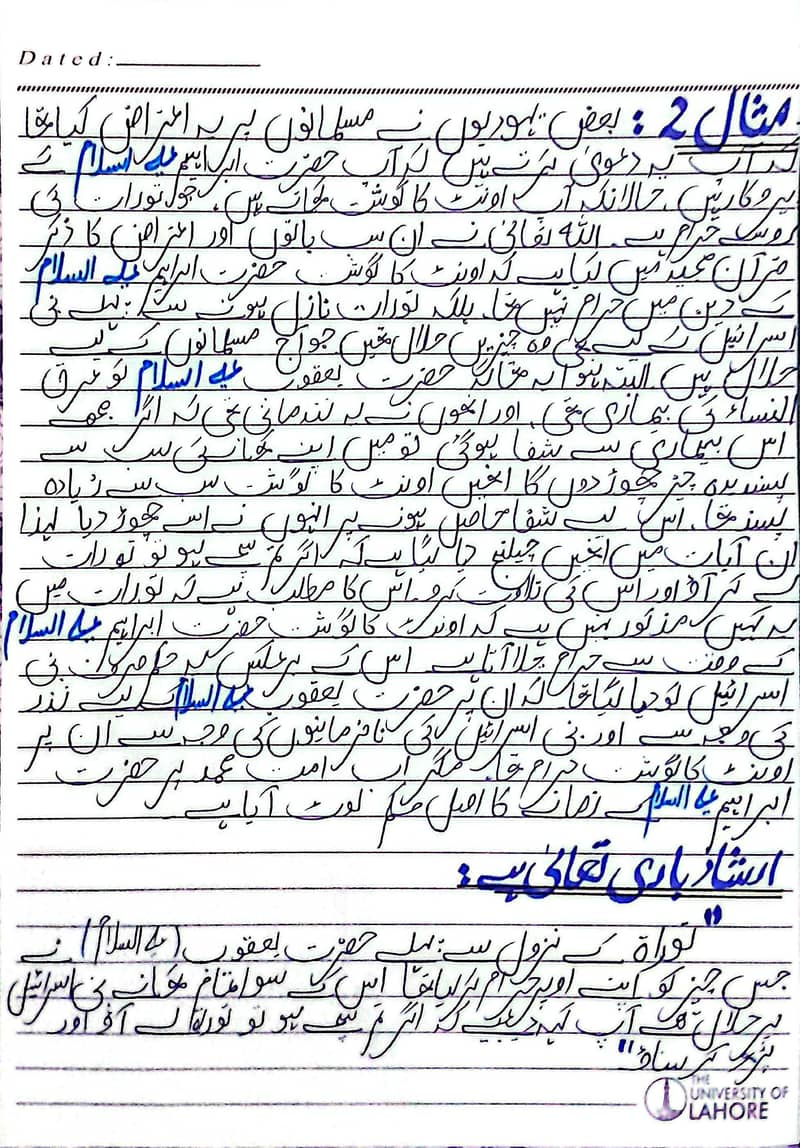 Dated:
مثال 2: بعض یہودیوں نے مسلمانوں پر یہ اعتراض کیا تھا
کہ آپ یہ دعویٰ کرتے ہیں کہ آپ حضرت ابراہیم علیہ السلام کے
پیروکار ہیں۔ حالانکہ آپ اونٹ کا گوشت کھاتے ہیں۔ جو تورات کی
روسے حرام ہے۔ اللہ تعالیٰ نے ان سب باتوں اور اعتراض کا ذکر
قرآن مجید میں کیا ہے کہ اونٹ کا گوشت حضرت ابراہیم علیہ السلام
کے دین میں حرام نہیں تھا۔ بلکہ تورات نازل ہونے سے پہلے بنی
اسرائیل کے لیے بھی وہ چیزیں حلال تھیں جو آج مسلمانوں کے لیے
حلال ہیں۔ البتہ ہوا یہ تھا کہ حضرت یعقوب علیہ السلام کو عرق
النساء کی بیماری تھی۔ اور انھوں نے یہ نذر مانی تھی کہ اگر مجھے
اس بیماری سے شفا ہوگئی تو میں اپنے کھانے کی سب سے
پسندیدہ چیز چھوڑ دوں گا انھیں اونٹ کا گوشت سب سے زیادہ
پسند تھا۔ اس لیے شفا حاصل ہونے پر انہوں نے اسے چھوڑ دیا لہذا
ان آیات میں انھیں چیلنج دیا گیا ہے کہ اگر تم سچے ہو تو تورات
لے کر آؤ اور اس کی تلاوت کرو۔ اس کا مطلب ہے کہ تورات میں
یہ کہیں مذکور نہیں ہے کہ اونٹ کا گوشت حضرت ابراہیم علیہ السلام
کے وقت سے حرام چلا آتا ہے اس کے برعکس یہ حکم صرف بنی
اسرائیل کو دیا گیا تھا۔ کہ ان پر حضرت یعقوب علیہ السلام کے لیے نذر
کی وجہ سے اور بنی اسرائیل کی نافرمانیوں کی وجہ سے ان پر
اونٹ کا گوشت حرام تھا۔ مگر اب امت محمد پر حضرت
ابراہیم علیہ السلام کے زمانے کا اصل حکم لوٹ آیا ہے
ارشاد باری تعالیٰ ہے:
"توراۃ کے نزول سے پہلے حضرت یعقوب (علیہ السلام) نے
جس چیز کو اپنے اوپر حرام کر لیا تھا اس کے سوا تمام کھانے بنی اسرائیل
پر حلال تھے آپ کہہ دیجیے کہ اگر تم سچے ہو تو توراۃ لے آؤ اور
پڑھ کر سناؤ"
THE
UNIVERSITY OF
LAHORE